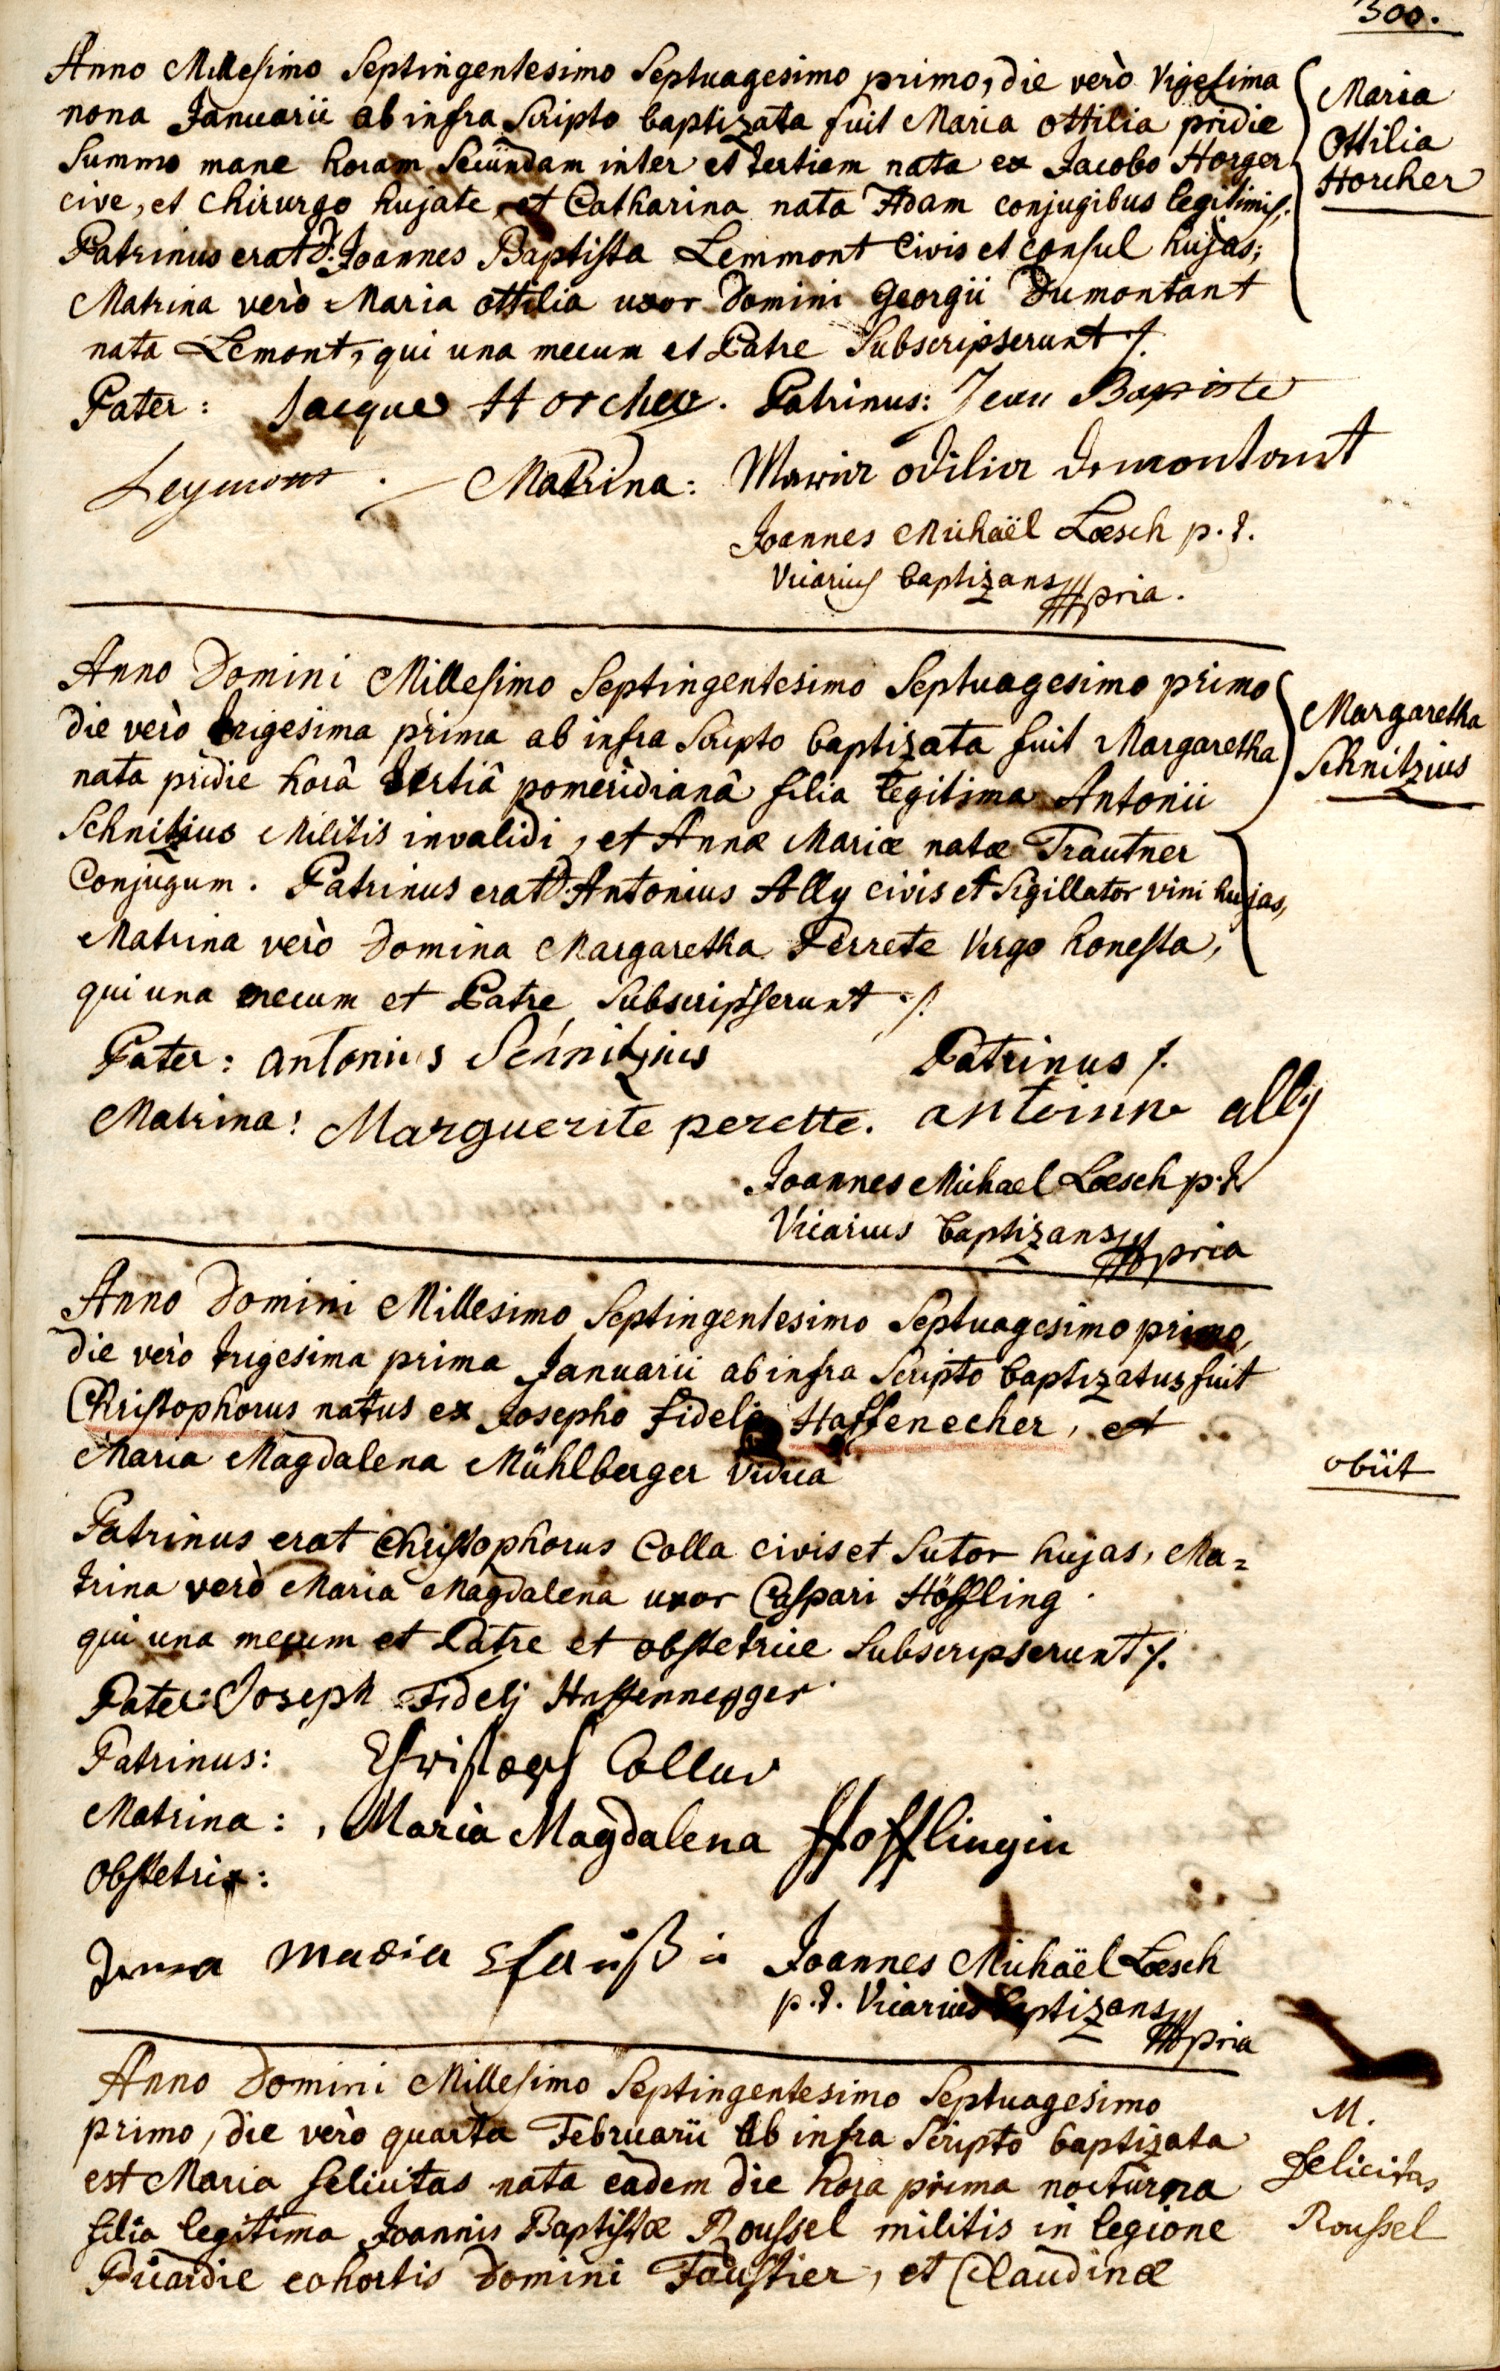 300.
Anno Millesimo Septingentesimo Septuagesimo primo, die verò vigesima
nona Januarii ab infra Scripto baptizata fuit Maria Ottilia pridie
summo mane horam secundam inter et tertiam nata ex Jacobo Horger
cive, et Chirurgo hujate, et Catharina nata Adam conjugibus legitimis.
Patrinus erat D. Joannes Baptista Lemmont Civis et Consul hujas;
Matrina verò Maria Ottilia uxor Domini Georgii Dumontant
nata Lemont, qui una mecum et Patre Subscripserunt ./.
Maria
Ottilia
Horcher
Pater: Jacque Horcher. Patrinus: Jean Baptiste
Leymont. Matrina: Maria odilia dumontant
Joannes Michaël Loesch p.t.
Vicarius baptizans mppria.
Anno Domini Millesimo Septingentesimo Septuagesimo primo
die verò trigesima prima ab infra Scripto baptizata fuit Margaretha
nata pridie horâ tertiâ pomeridianâ filia legitima Antonii
Schnitzius Militis invalidi, et Annæ Mariæ natæ Trautner
Conjugum. Patrinus erat D. Antonius Ally civis et Sigillator vini hujas,
Matrina verò Domina Margaretha Perrete Virgo honesta,
qui una mecum et Patre Subscripserunt ./.
Margaretha
Schnitzius
Pater: antonius Schnitzius Patrinus ./.
Matrina: Marguerite perette. antoinne ally
Joannes Michael Loesch p.t.
Vicarius baptizans mppria
Anno Domini Millesimo Septingentesimo Septuagesimo primo,
die verò trigesima prima Januarii ab infra Scripto baptizatus fuit
Christophorus natus ex Josepho fideli Haffenecher, et
Maria Magdalena Mühlberger Vidua
obiit
Patrinus erat Christophorus Colla civis et Sutor hujas, Ma=
trina verò Maria Magdalena uxor Caspari Höffling
qui una mecum et Patre et obstetrice Subscripserunt ./.
Pater: Joseph Fidelj Haffennegger
Patrinus: Christoph Collur
Matrina: Maria Magdalena Hofflingin
Obstetrix:
maria Joannes Michaël Loesch
p.t. Vicarius baptizans mppria
Anno Domini Millesimo Septingentesimo Septuagesimo
primo, die verò quarta Februarii ab infra Scripto baptizata
est Maria felicitas nata eadem die hora prima nocturna
filia legitima Joannis Baptistæ Roussel militis in legione
Picardie cohortis Domini Faustier, et Claudinæ
M.
Felicitas
Roussel